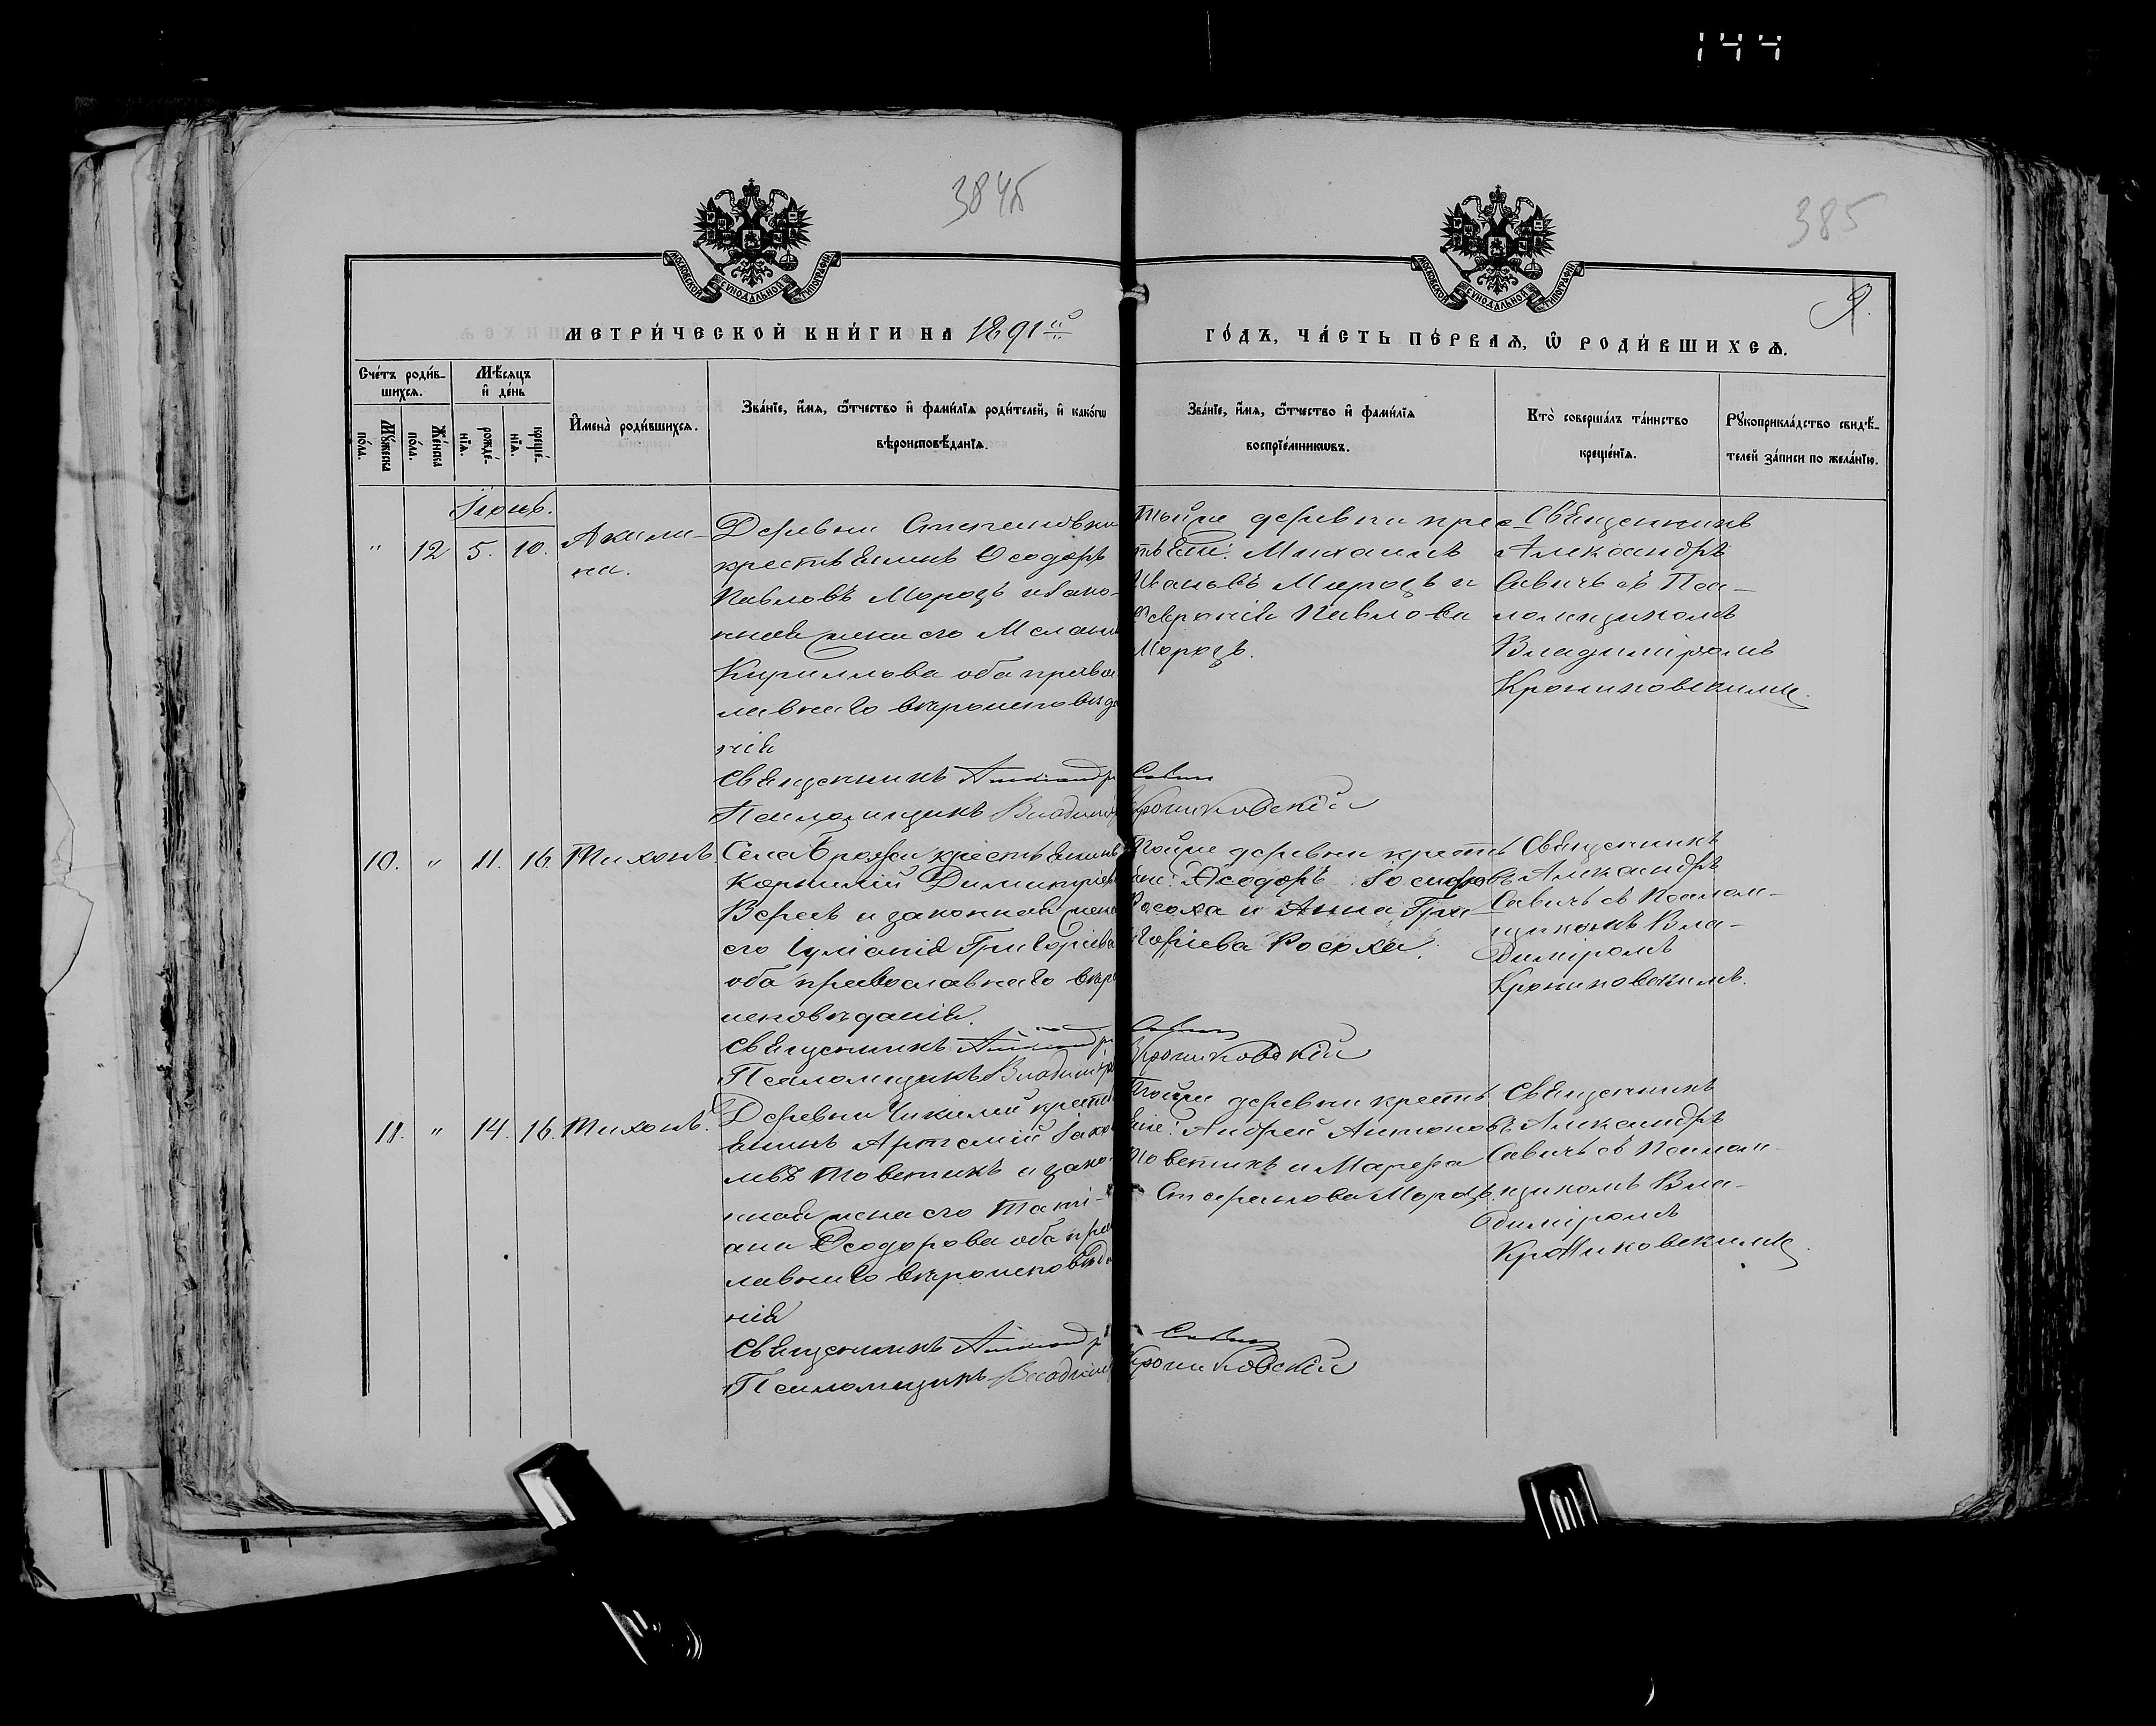 144
384б
385
МОСКОВСКОЙ СѴНОДАЛЬНОЙ ТИПОГРАФІИ
МОСКОВСКОЙ СѴНОДАЛЬНОЙ ТИПОГРАФІИ
9.
МЕТРИ́ЧЕСКОЙ КНИ́ГИ НА 1891 й
ГО́ДЪ, ЧА́СТЬ ПЕ́РВАѦ, Ѡ РОДИ́ВШИХСѦ.
Сче́тъ роди́в-
шихсѧ.
Мѣ́сѧцъ
и҆ де́нь
Мꙋ́жеска по́ла.
Же́нска по́ла.
рожде́-
нїѧ.
креще́-
нїѧ.
И҆мена̀ роди́вшихсѧ.
Зва́нїе, и҆́мѧ, ѻ҆́тчество и҆ фами́лїѧ роди́телей, и҆ како́гѡ
вѣроисповѣ́данїѧ.
Зва́нїе, и҆́мѧ, ѻ҆́тчество и҆ фами́лїѧ
воспрїе́мникѡвъ.
Кто̀ соверша́лъ та́инство
креще́нїѧ.
Рꙋкоприкла́дство свидѣ́-
телей за́писи по жела́нїю.
Іюнь.
" 12 5. 10.
Акили-
на.
Деревни Степановки
крестьянинъ Ѳеодоръ
Павловъ Морозъ и зако-
нная жена его Мелані
Кириллова оба правос
лавнаго вѣроисповѣда
нія
Священникъ Александръ Савич
Псаломщикъ Владиміръ Крониковскій
Тойже деревни крес-
тьяне: Михаилъ
Ивановъ Морозъ и
Ѳевронія Павлова
Морозъ.
Священникъ
Александръ
Савичъ съ Пса-
ломщикомъ
Владиміромъ
Крониковскимъ.
10. " 11. 16. Тихонъ.
Села крестьянинъ
Корнилій Димитріевъ
и законная жена
его Іуліанія Григоріева
оба православнаго вѣро
исповѣданія.
Священникъ Александръ Савич
Псаломщикъ Владиміръ Крониковскій
Тойже деревни кресть
яне: Ѳеодоръ Іосифовъ
Росоха и Анна Гри-
горіева Росоха.
Священникъ
Александръ
Савичъ съ Псалом-
щикомъ Вла-
диміромъ
Крониковскимъ.
11. " 14. 16. Тихонъ.
Деревни кресть
янинъ Артемій Іаков
левъ и зако-
нная жена его Таті-
ана Ѳеодорова оба прав
лавнаго вѣроисповѣда
нія
Священникъ Александръ Савич
Псаломщикъ Владиміръ Крониковскій
Тойже деревни кресть
яне: Андрей Антоновъ
и Марѳа
Стефанова Морозъ.
Священникъ
Александръ
Савичъ съ Псалом-
щикомъ Вла-
диміромъ
Крониковскимъ.